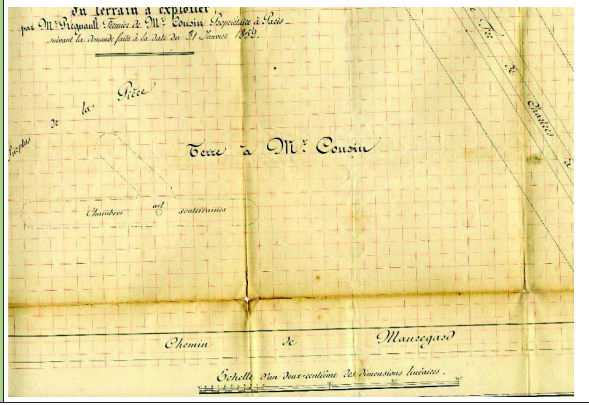 du terrain à exploiter
par Mr. Regnault Fermier de Mr. Cousin Propriétaire à Paris
suivant la demande faite à la date du 21 Janvier 1852.
de la Pièce
Fer de Chartres à
Terre à Mr. Cousin
Chambres souterraines
Chemin de Mauregard
Echelle d'un deux-centième des dimensions linéaires.